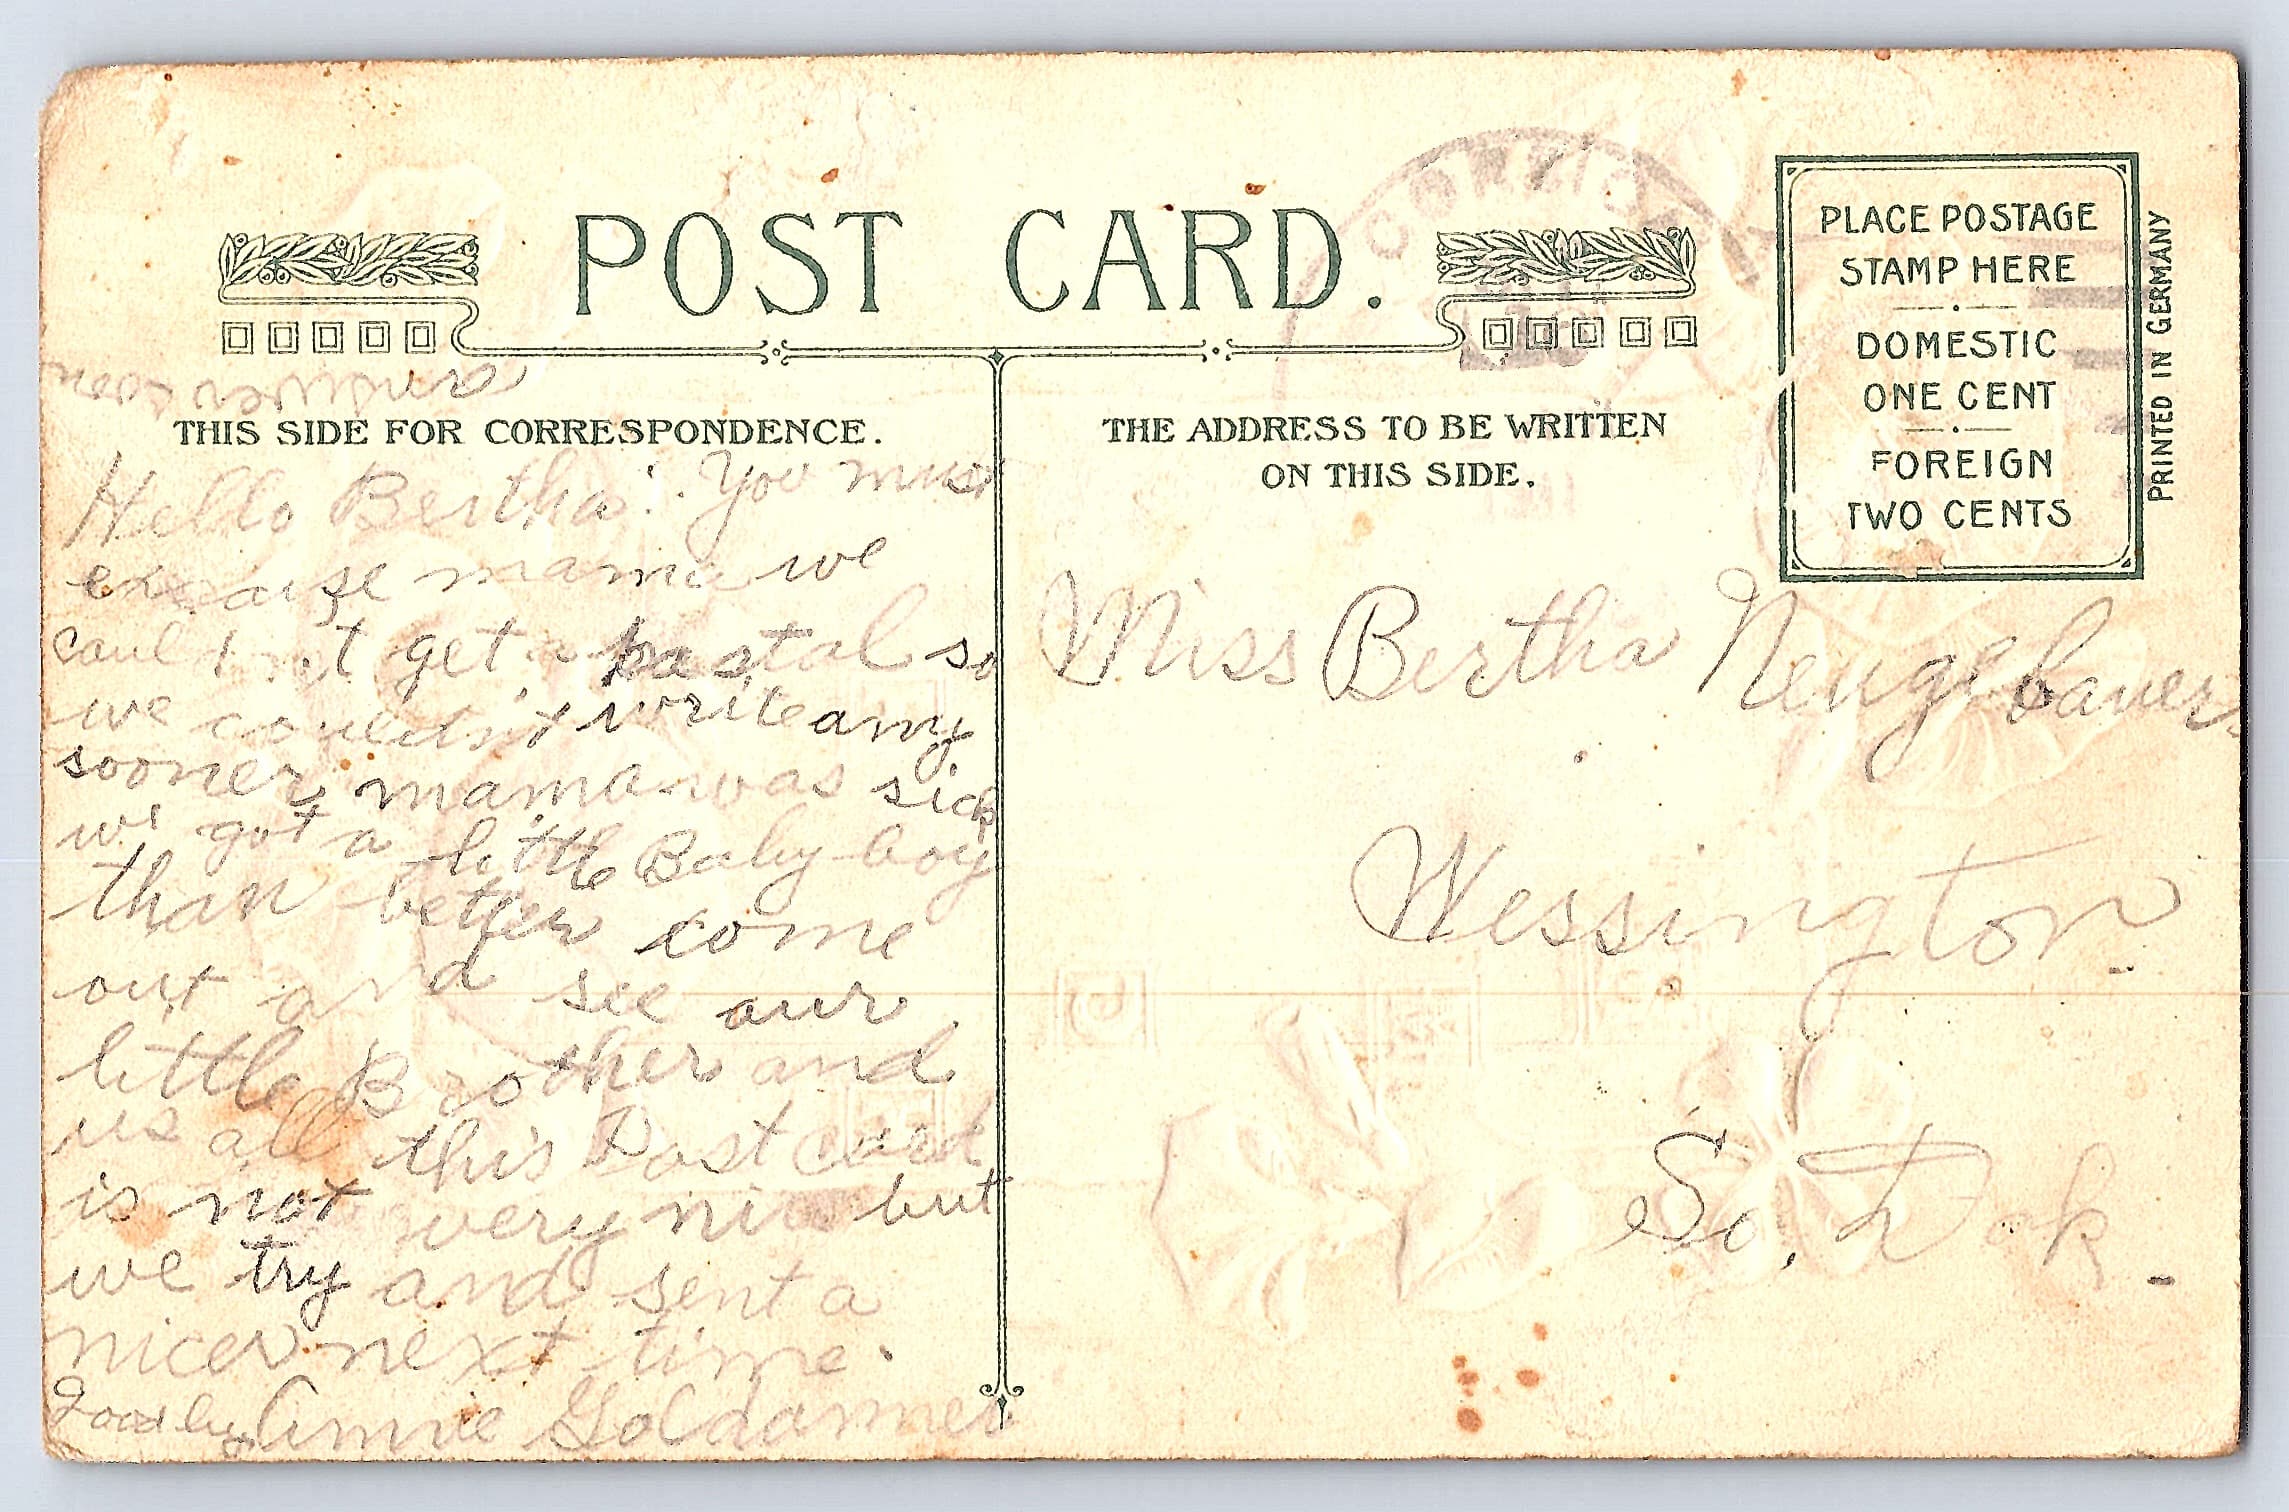 POST CARD.
PLACE POSTAGE
STAMP HERE
DOMESTIC
ONE CENT
FOREIGN
TWO CENTS
PRINTED IN GERMANY
answer soon
THIS SIDE FOR CORRESPONDENCE.
Hello Bertha: You must
excause mama we
could not get a postal so
we couldn't write any
sooner mama was sick
we got a little Baby boy
than better come
out and see our
little Brother and
us all this Post card
is not very nice but
we try and sent a
nicer next time.
Good by, Annie Goldammer
THE ADDRESS TO BE WRITTEN
ON THIS SIDE.
Miss Bertha Neugebauer
Wessington
So. Dak.